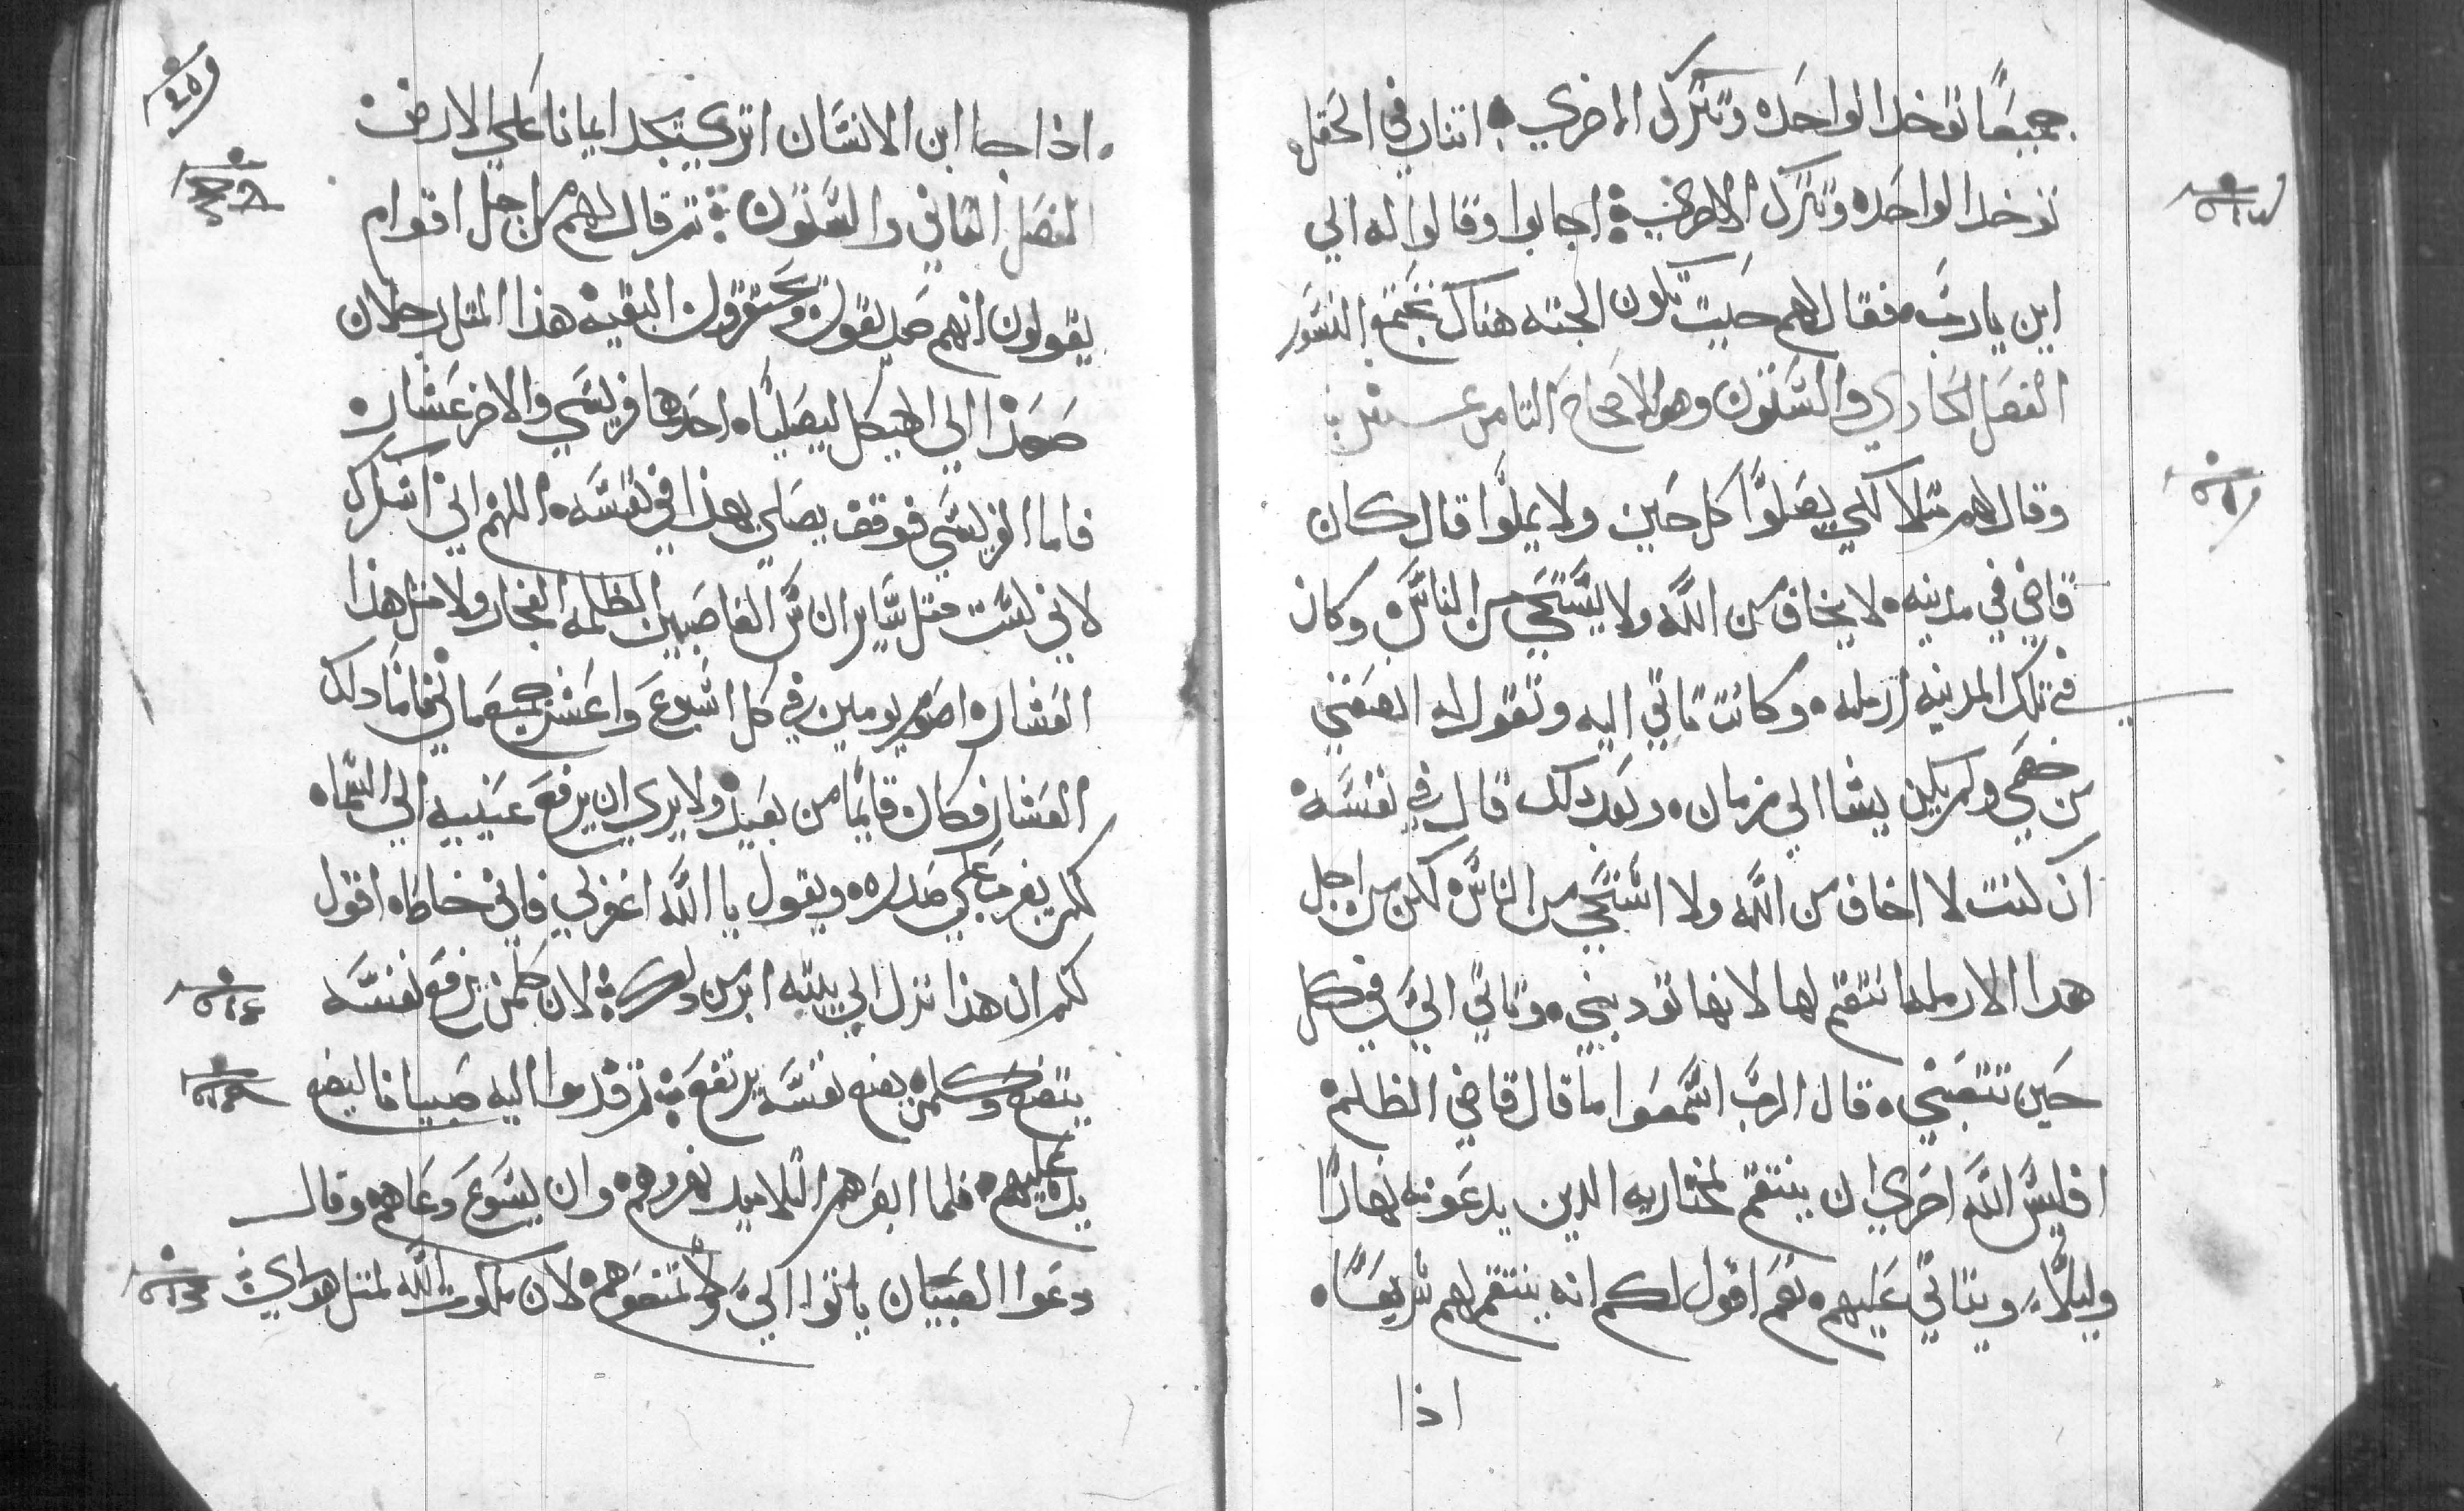 جميعًا توخد الواحده وتترك الاخري اتنان في الحقل
توخد الواحده وتترك الاخري اجابوا وقالوا له الي
اين يا رب فقال لهم حيت تكون الجته هناك تجتمع النسور
الفصل الحادي والستون وهو الاصحاح التامن عشر
وقال لهم متلا لكي يصلوا كل حين ولا يملوا قال كان
قاضي في مدينه لا يخاف من الله ولا يستحي من الناس وكان
في تلك المدينه ارمله وكانت تاتي اليه وتقول له انصفني
من خصمي ولم يكن يشا الي زمان وبعد دلك قال في نفسه
ان كنت لا اخاف من الله ولا استحي من الناس لكن من اجل
هدا الارمله انتقم لها لانها تودينني وتاتي الي في كل
حين تتعبني قال الرب اسمعوا ما قال قاضي الظلمه
افليس الله احري ان ينتقم لمختاريه الدين يدعونه نهارًا
وليلًا ويتاني عليهم نعم اقول لكم انه ينتقم لهم سريعًا
اذا
اذا جا ابن الانسان اتري يجد ايمانا علي الارض
الفصل التاني والستون تم قال لهم من اجل اقوام
يقولون انهم صديقون ويحتقرون البقيه هذا المتل رجلان
صعدا الي الهيكل ليصليا احدهما فريسي والاخر عشار
فاما الفريسي فوقف يصلي بهذا في نفسه اللهم اني اشكرك
لاني لست متل ساير الناس الغاصبين الظلمه الفجار ولا متل هذا
العشار اصوم يومين في كل اسبوع واعشر جميع مالي فاما دلك
العشار فكان قايمًا من بعيد ولا يري ان يرفع عينيه الي السماه
لكن يضرب علي صدره ويقول يا الله اغفر لي فاني خاطاه اقول
لكم ان هذا نزل الي بيته ابر من دلك لان كلمن يرفع نفسه
يتضع وكلمن يضع نفسه يرتفع تم قدموا اليه صبيانا ليضع
يده عليهم فلما ابصرهم التلاميد نهروهم وان يسوع دعاهم وقال
دعوا الصبيان ياتوا الي ولا تمنعوهم لان ملكوت الله لمتل هولاي